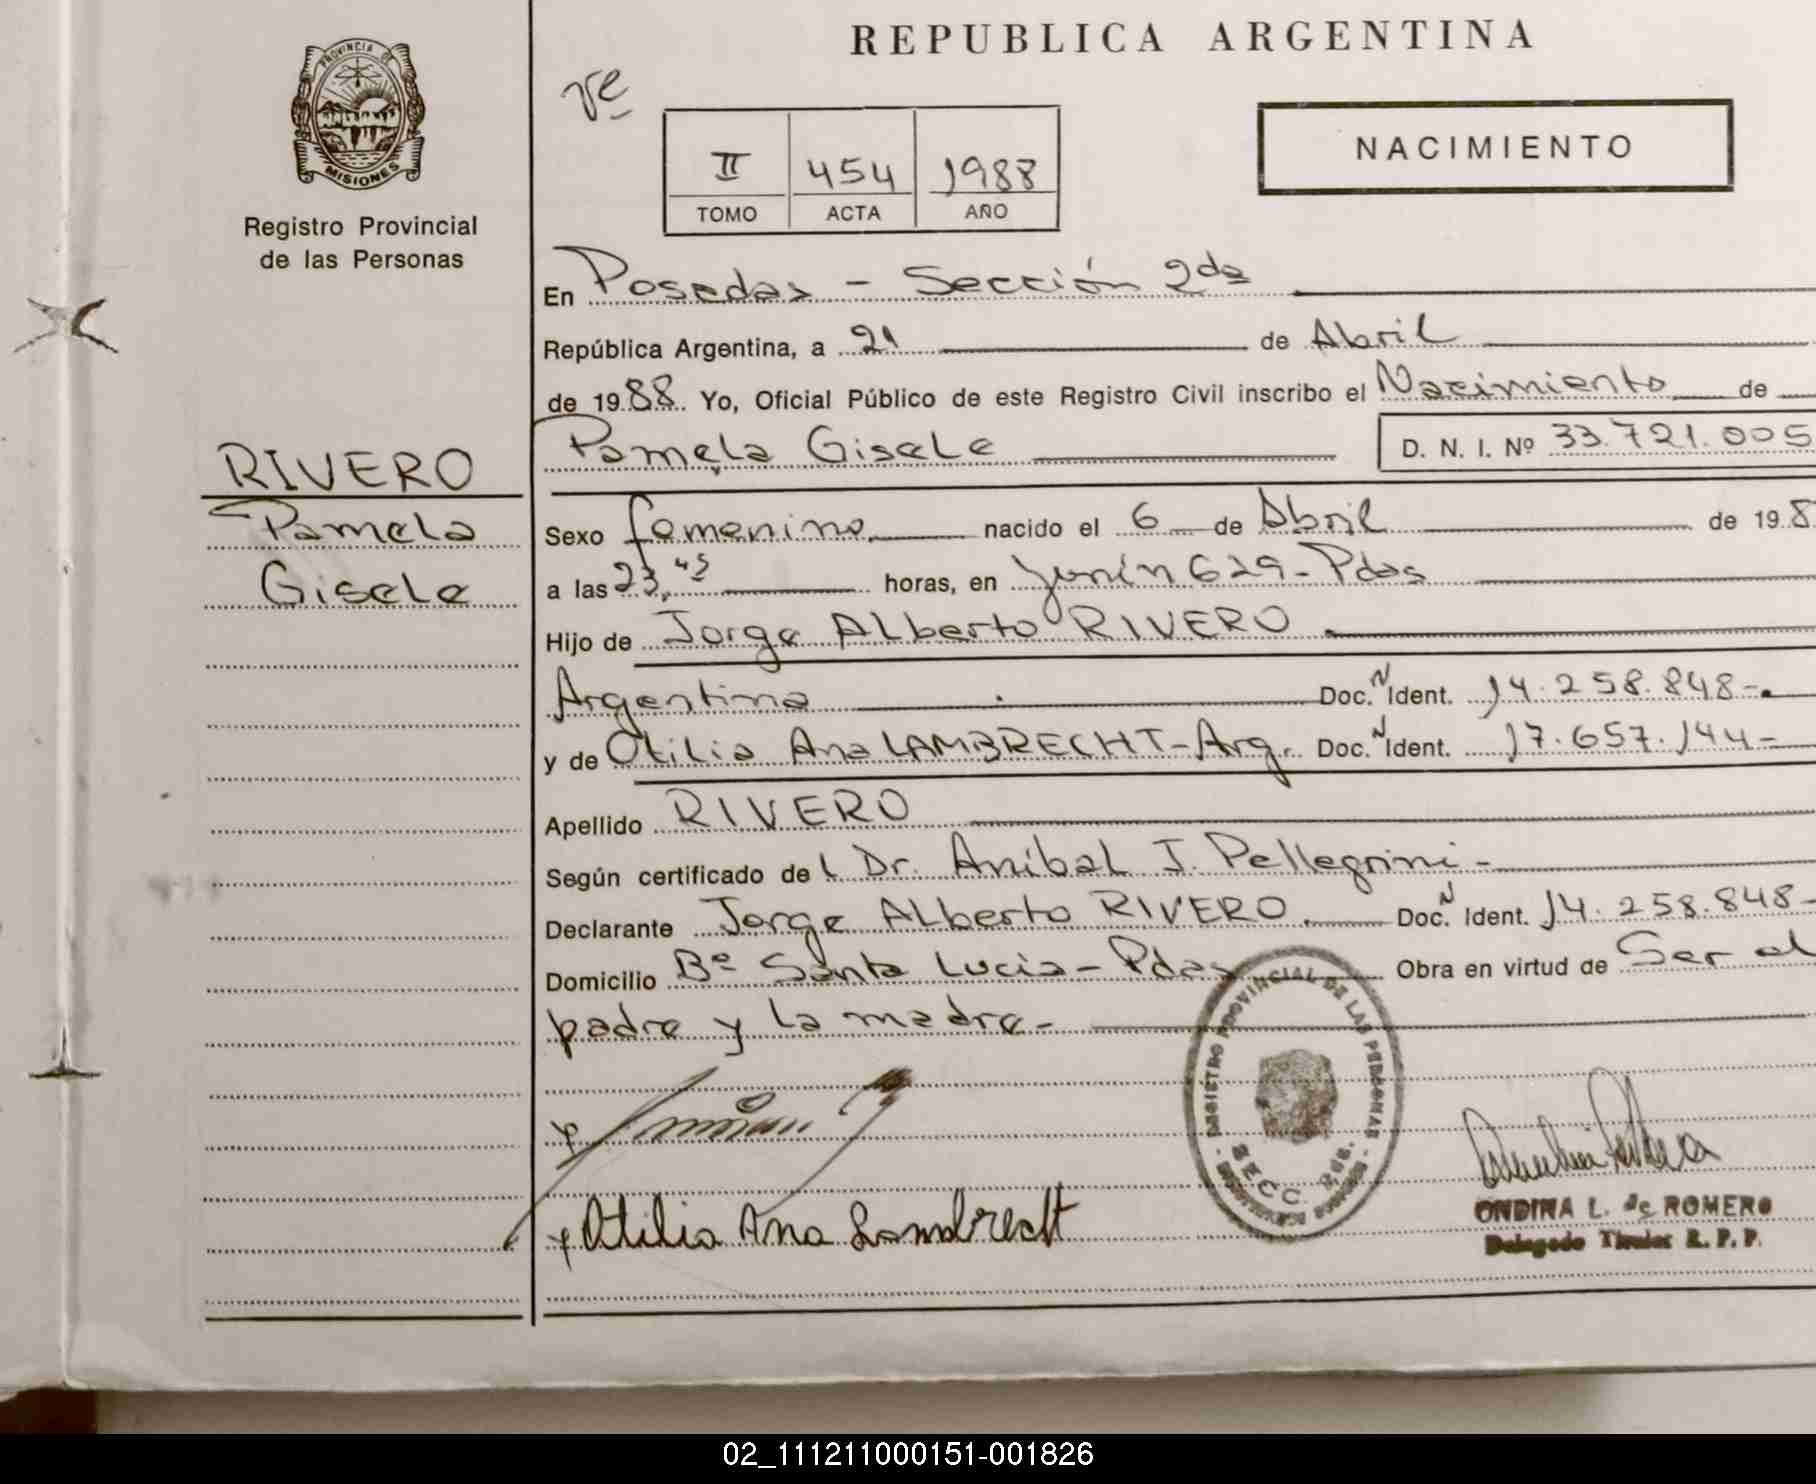 REPUBLICA ARGENTINA
PROVINCIA DE
MISIONES
Registro Provincial
de las Personas
NACIMIENTO
II 454 1988
TOMO ACTA AÑO
En Posadas - Sección 2da
República Argentina, a 21 de Abril
de 1988 Yo, Oficial Público de este Registro Civil inscribo el Nacimiento de
RIVERO
Pamela
Gisele
Pamela Gisele D. N. I. Nº 33.721.005
Sexo femenino nacido el 6 de Abril de 198
a las 23,45 horas, en Junín 629 - Pdas
Hijo de Jorge Alberto RIVERO
Argentina Doc. N Ident. 14.258.848-
y de Otilia Ana LAMBRECHT - Arg. Doc. N Ident. 17.657.144-
Apellido RIVERO
Según certificado del Dr. Aníbal J. Pellegrini -
Declarante Jorge Alberto RIVERO. Doc. N Ident. 14.258.848-
Domicilio Bº Santa Lucia - Pdas Obra en virtud de Ser el
padre y la madre -
REGISTRO PROVINCIAL DE LAS PERSONAS
SECC. 2da.
Otilia Ana Lambrecht
ONDINA L. de ROMERO
Delegado Titular R. P. P.
02_111211000151-001826